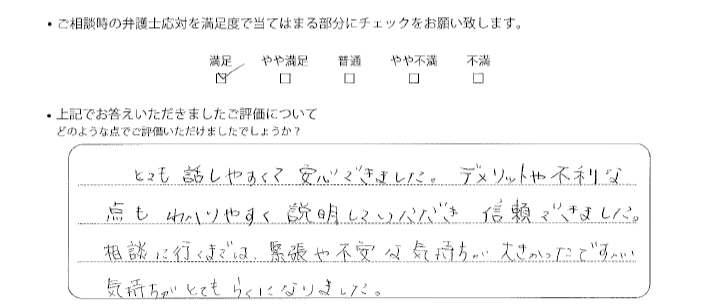 ・ご相談時の弁護士応対を満足度で当てはまる部分にチェックをお願い致します。
満足 やや満足 普通 やや不満 不満
・上記でお答えいただきましたご評価について
どのような点でご評価いただけましたでしょうか？
とても話しやすくて安心できました。デメリットや不利な
点もわかりやすく説明していただき信頼できました。
相談に行くまでは、緊張や不安な気持ちが大きかったですが
気持ちがとてもらくになりました。